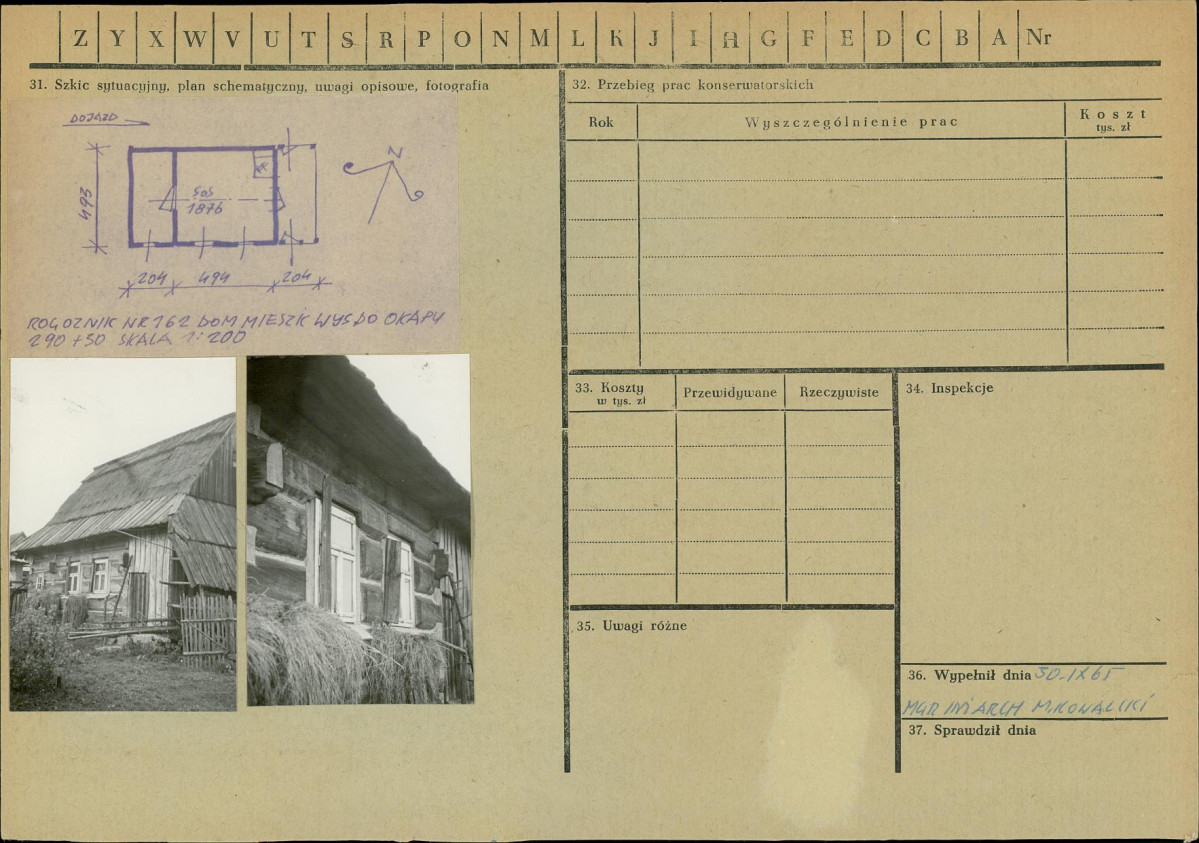 Z Y X W V U T S R P O N M L K J I H G F E D C B A Nr
31. Szkic sytuacyjny, plan schematyczny, uwagi opisowe, fotografia
DOJAZD
N
493
SOS
1876
204 494 204
ROGOŹNIK NR 162 DOM MIESZK WYS DO OKAPU
290 + 50 SKALA 1:200
32. Przebieg prac konserwatorskich
Rok
Wyszczególnienie prac
Koszt
tys. zł
33. Koszty
w tys. zł
Przewidywane
Rzeczywiste
34. Inspekcje
35. Uwagi różne
36. Wypełnił dnia 30-IX 65
MGR INŻ ARCH M. KOWALSKI
37. Sprawdził dnia